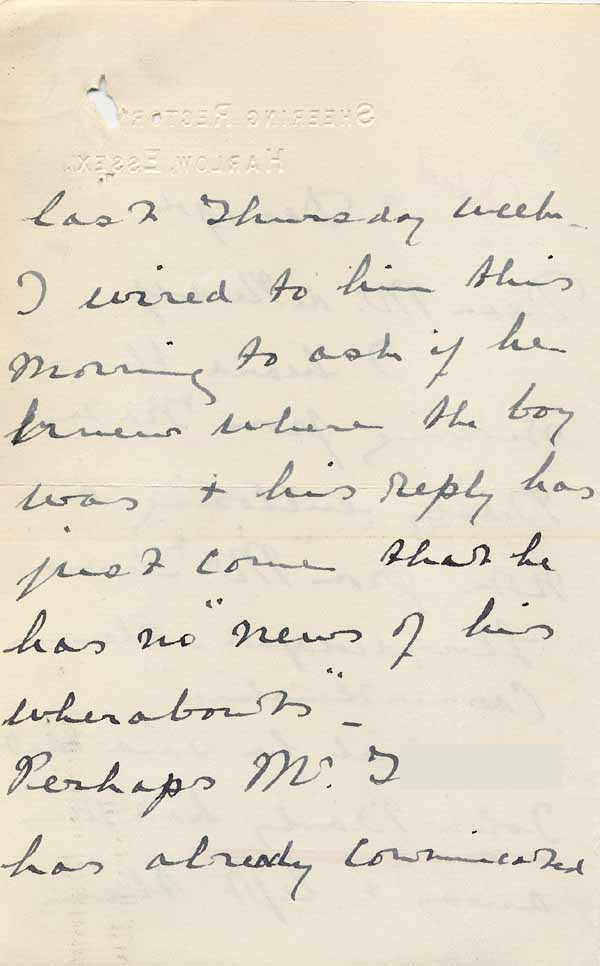 SHEERING RECTORY
HARLOW, ESSEX.
last Thursday week -
I wired to him this
morning to ask if he
knew where the boy
was + his reply has
just come that he
has no "news of his
wherabouts" -
Perhaps Mr. T
has already communicated